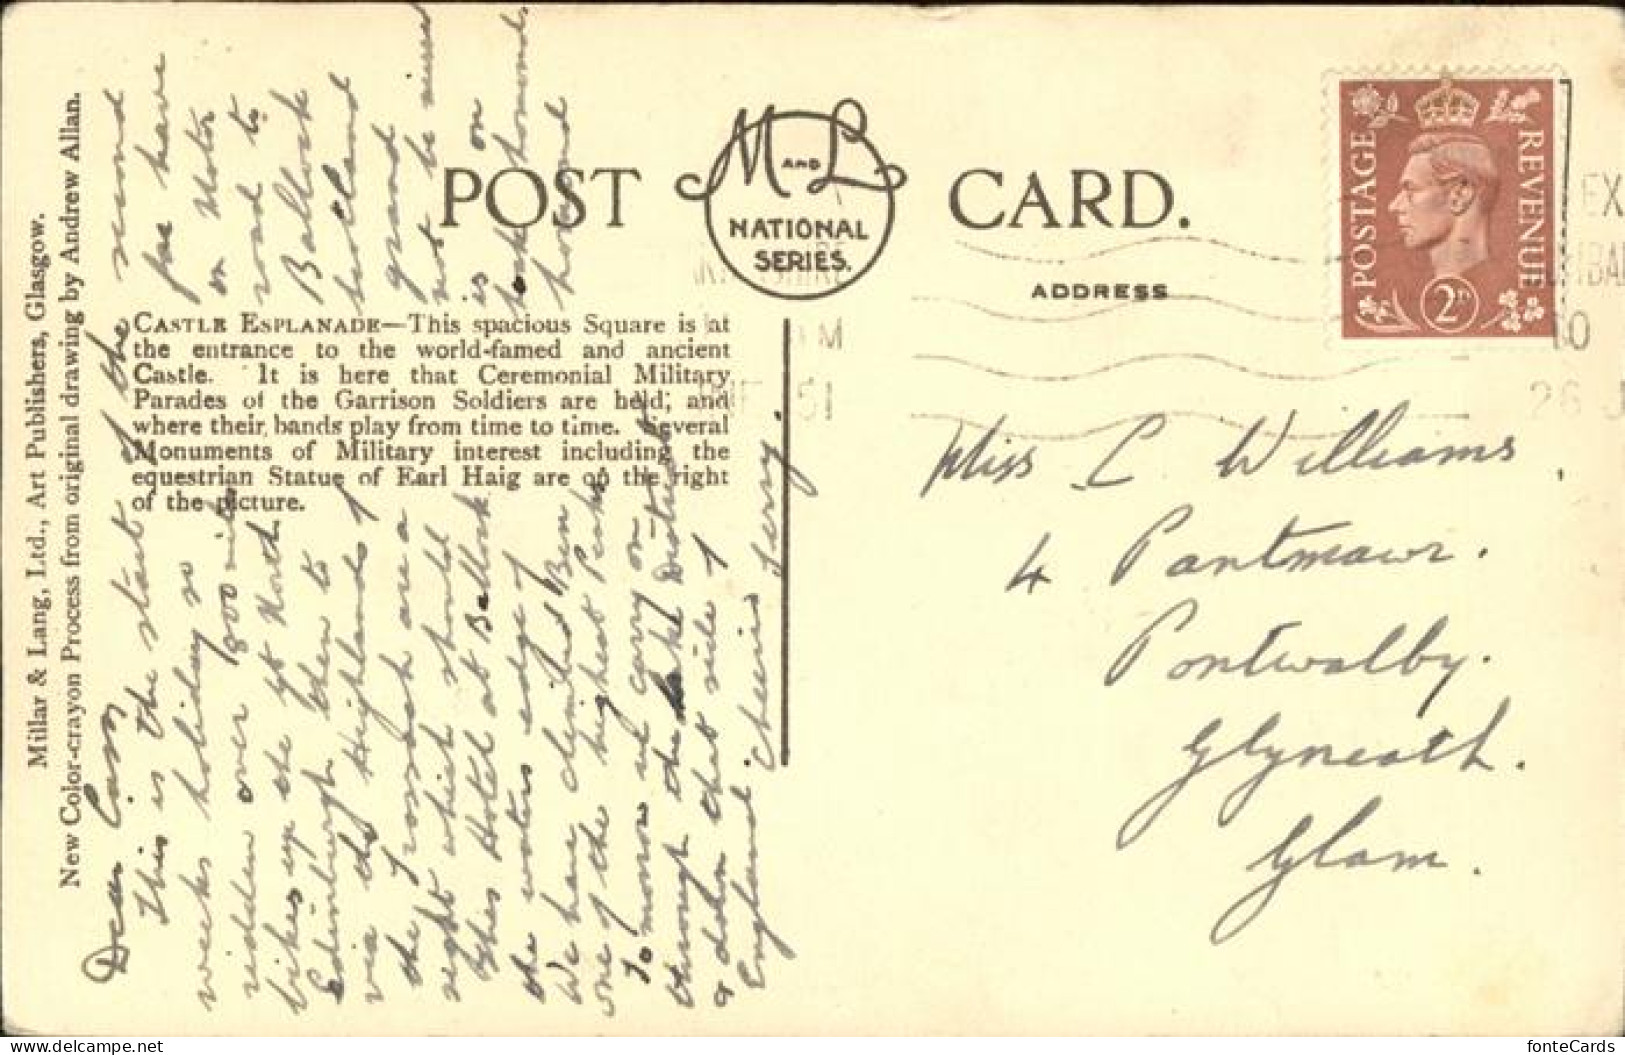 Millar & Lang, Ltd., Art Publishers, Glasgow.
New Color-crayon Process from original drawing by Andrew Allan.
POST CARD.
M AND L
NATIONAL
SERIES.
ADDRESS
POSTAGE REVENUE
2D
CASTLE ESPLANADE—This spacious Square is at
the entrance to the world-famed and ancient
Castle. It is here that Ceremonial Military
Parades of the Garrison Soldiers are held, and
where their bands play from time to time. Several
Monuments of Military interest including the
equestrian Statue of Earl Haig are on the right
of the picture.
Dear
This is the start of the second
weeks holiday so far have
ridden over 1800 miles on Motor
bikes up the Gt North road to
Edinburgh then to Balloch
via the Highlands of Scotland
the are a grand
sight which should not be missed
This Hotel at Balloch is on
the waters edge of
We have climbed Ben
one of the highest Peaks
Tomorrow we carry on
through the Lake District
& down that side of
England. Cheerio Terry.
Miss C Williams,
4 Pantmawr.
Pontwalby.
Glyneath.
Glam.